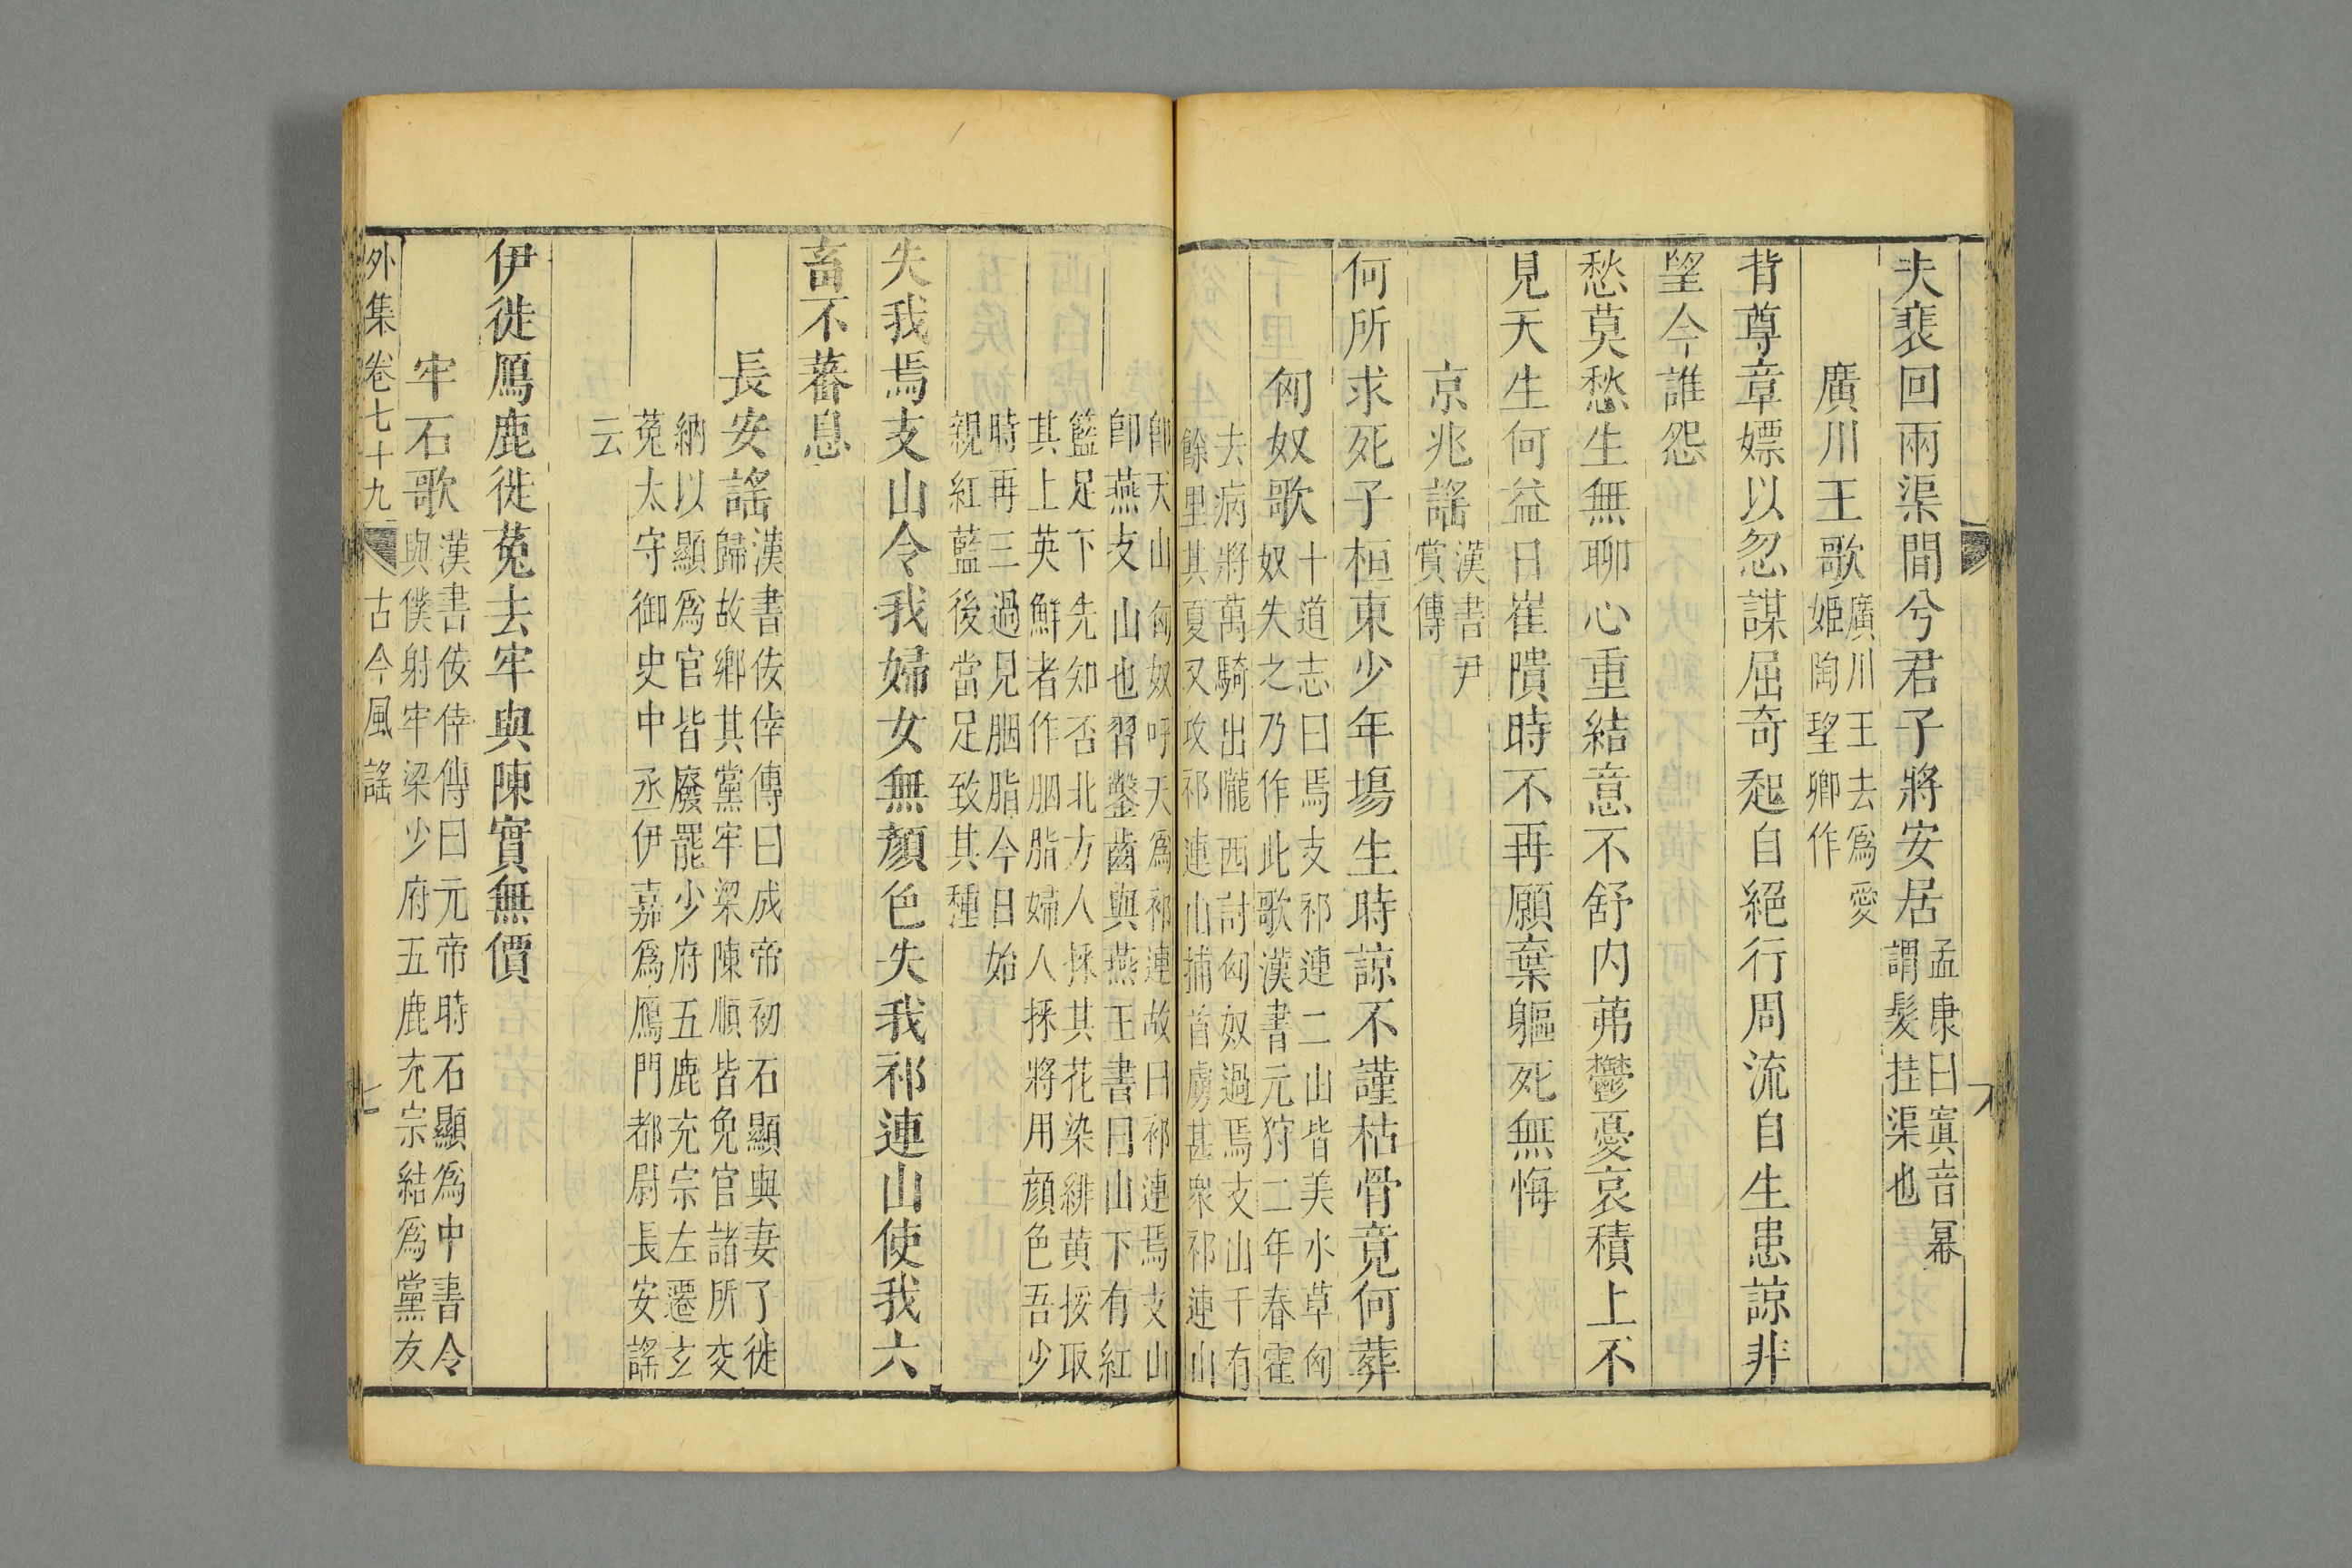 夫裴回兩渠間兮君子將安居孟康曰寘音冪
謂髮挂渠也
廣川王歌廣川王去爲愛
姬陶望卿作
背尊章嫖以忽謀屈奇起自絕行周流自生患諒非
望今誰怨
愁莫愁生無聊心重結意不舒内茀鬱憂哀積上不
見天生何益日崔隤時不再願棄軀死無悔
京兆謠漢書尹
賞傳
何所求死子桓東少年塲生時諒不謹枯骨竟何葬
匈奴歌十道志曰焉支祁連二山皆美水草匈
奴失之乃作此歌漢書元狩二年春霍
去病將萬騎出隴西討匈奴過焉支山千有
餘里其夏又攻祁連山捕首虜甚衆祁連山
卽天山匈奴呼天爲祁連故曰祁連焉支山
卽燕支山也習鑿齒與燕王書曰山下有紅
籃足下先知否北方人採其花染緋黄挼取
其上英鮮者作胭脂婦人採將用顔色吾少
時再三過見胭脂今日始
親紅藍後當足致其種
失我焉支山令我婦女無顔色失我祁連山使我六
畜不蕃息
長安謠漢書佞倖傳曰成帝初石顯與妻子徙
歸故鄉其黨牢梁陳順皆免官諸所交
納以顯爲官皆廢罷少府五鹿充宗左遷玄
菟太守御史中丞伊嘉爲鴈門都尉長安謠
云
伊徙鴈鹿徙菟去牢與陳實無價
牢石歌漢書佞倖傳曰元帝時石顯爲中書令
與僕射牢梁少府五鹿充宗結爲黨友
外集卷七十九 古今風謠 七